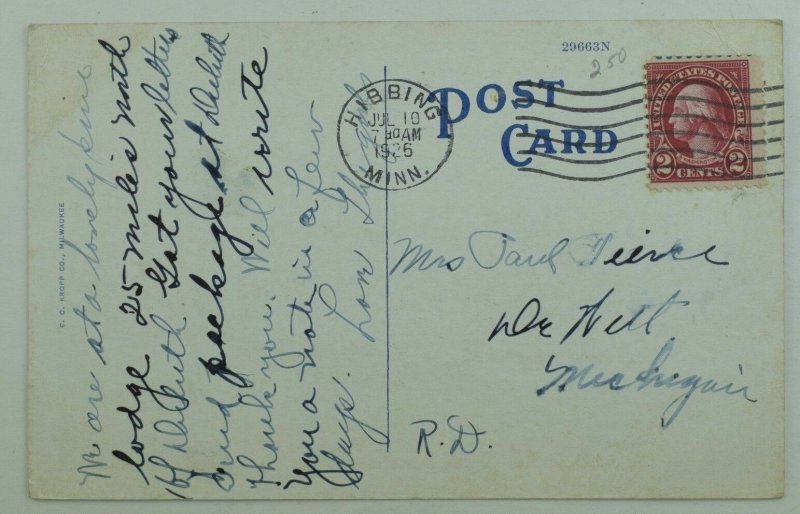 29663N
250
POST
CARD
HIBBING
JUL 10
7 30 AM
1926
MINN.
UNITED STATES POSTAGE
2 CENTS 2
E. C. KROPP CO., MILWAUKEE
We are at a lovely pine
lodge 25 miles north
of Duluth. Got your letters
and package at Duluth
Thank you. Will write
you a note in a few
days. Love
Mrs Paul Pierce
De Witt
Michigan
R.D.